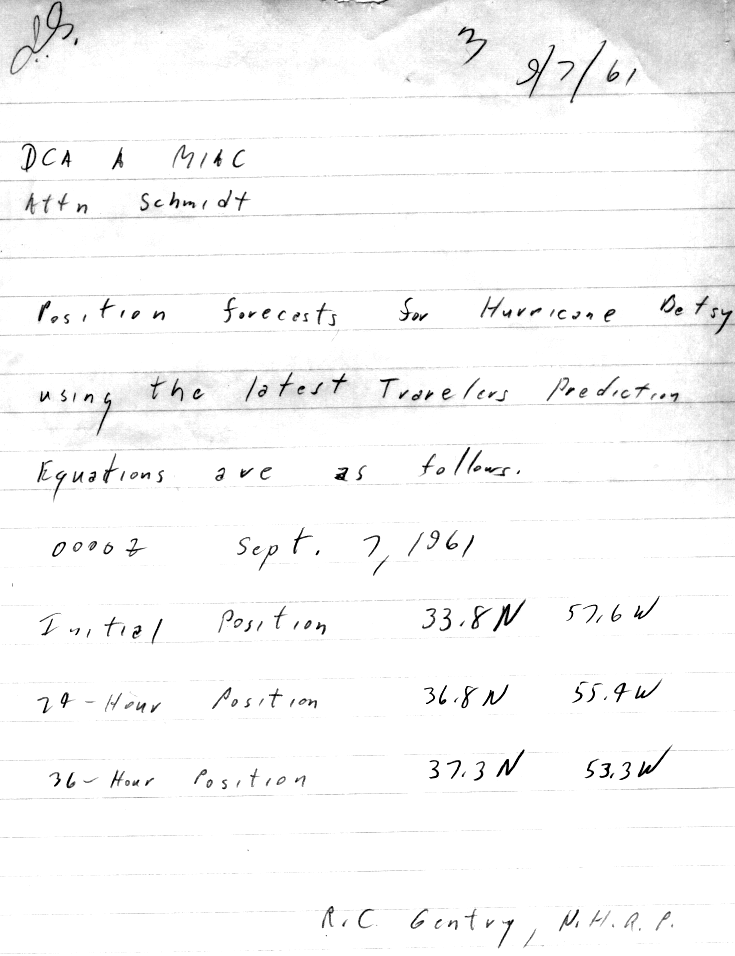 J.G.
3
9/7/61
DCA A MIAC
Attn Schmidt
Position forecests for Hurricane Betsy
using the latest Travelers Prediction
Equations are as follows.
0000Z Sept. 7, 1961
Initial Position 33.8N 57.6W
24-Hour Position 36.8N 55.4W
36-Hour Position 37.3N 53.3W
R.C. Gentry, N.H.R.P.